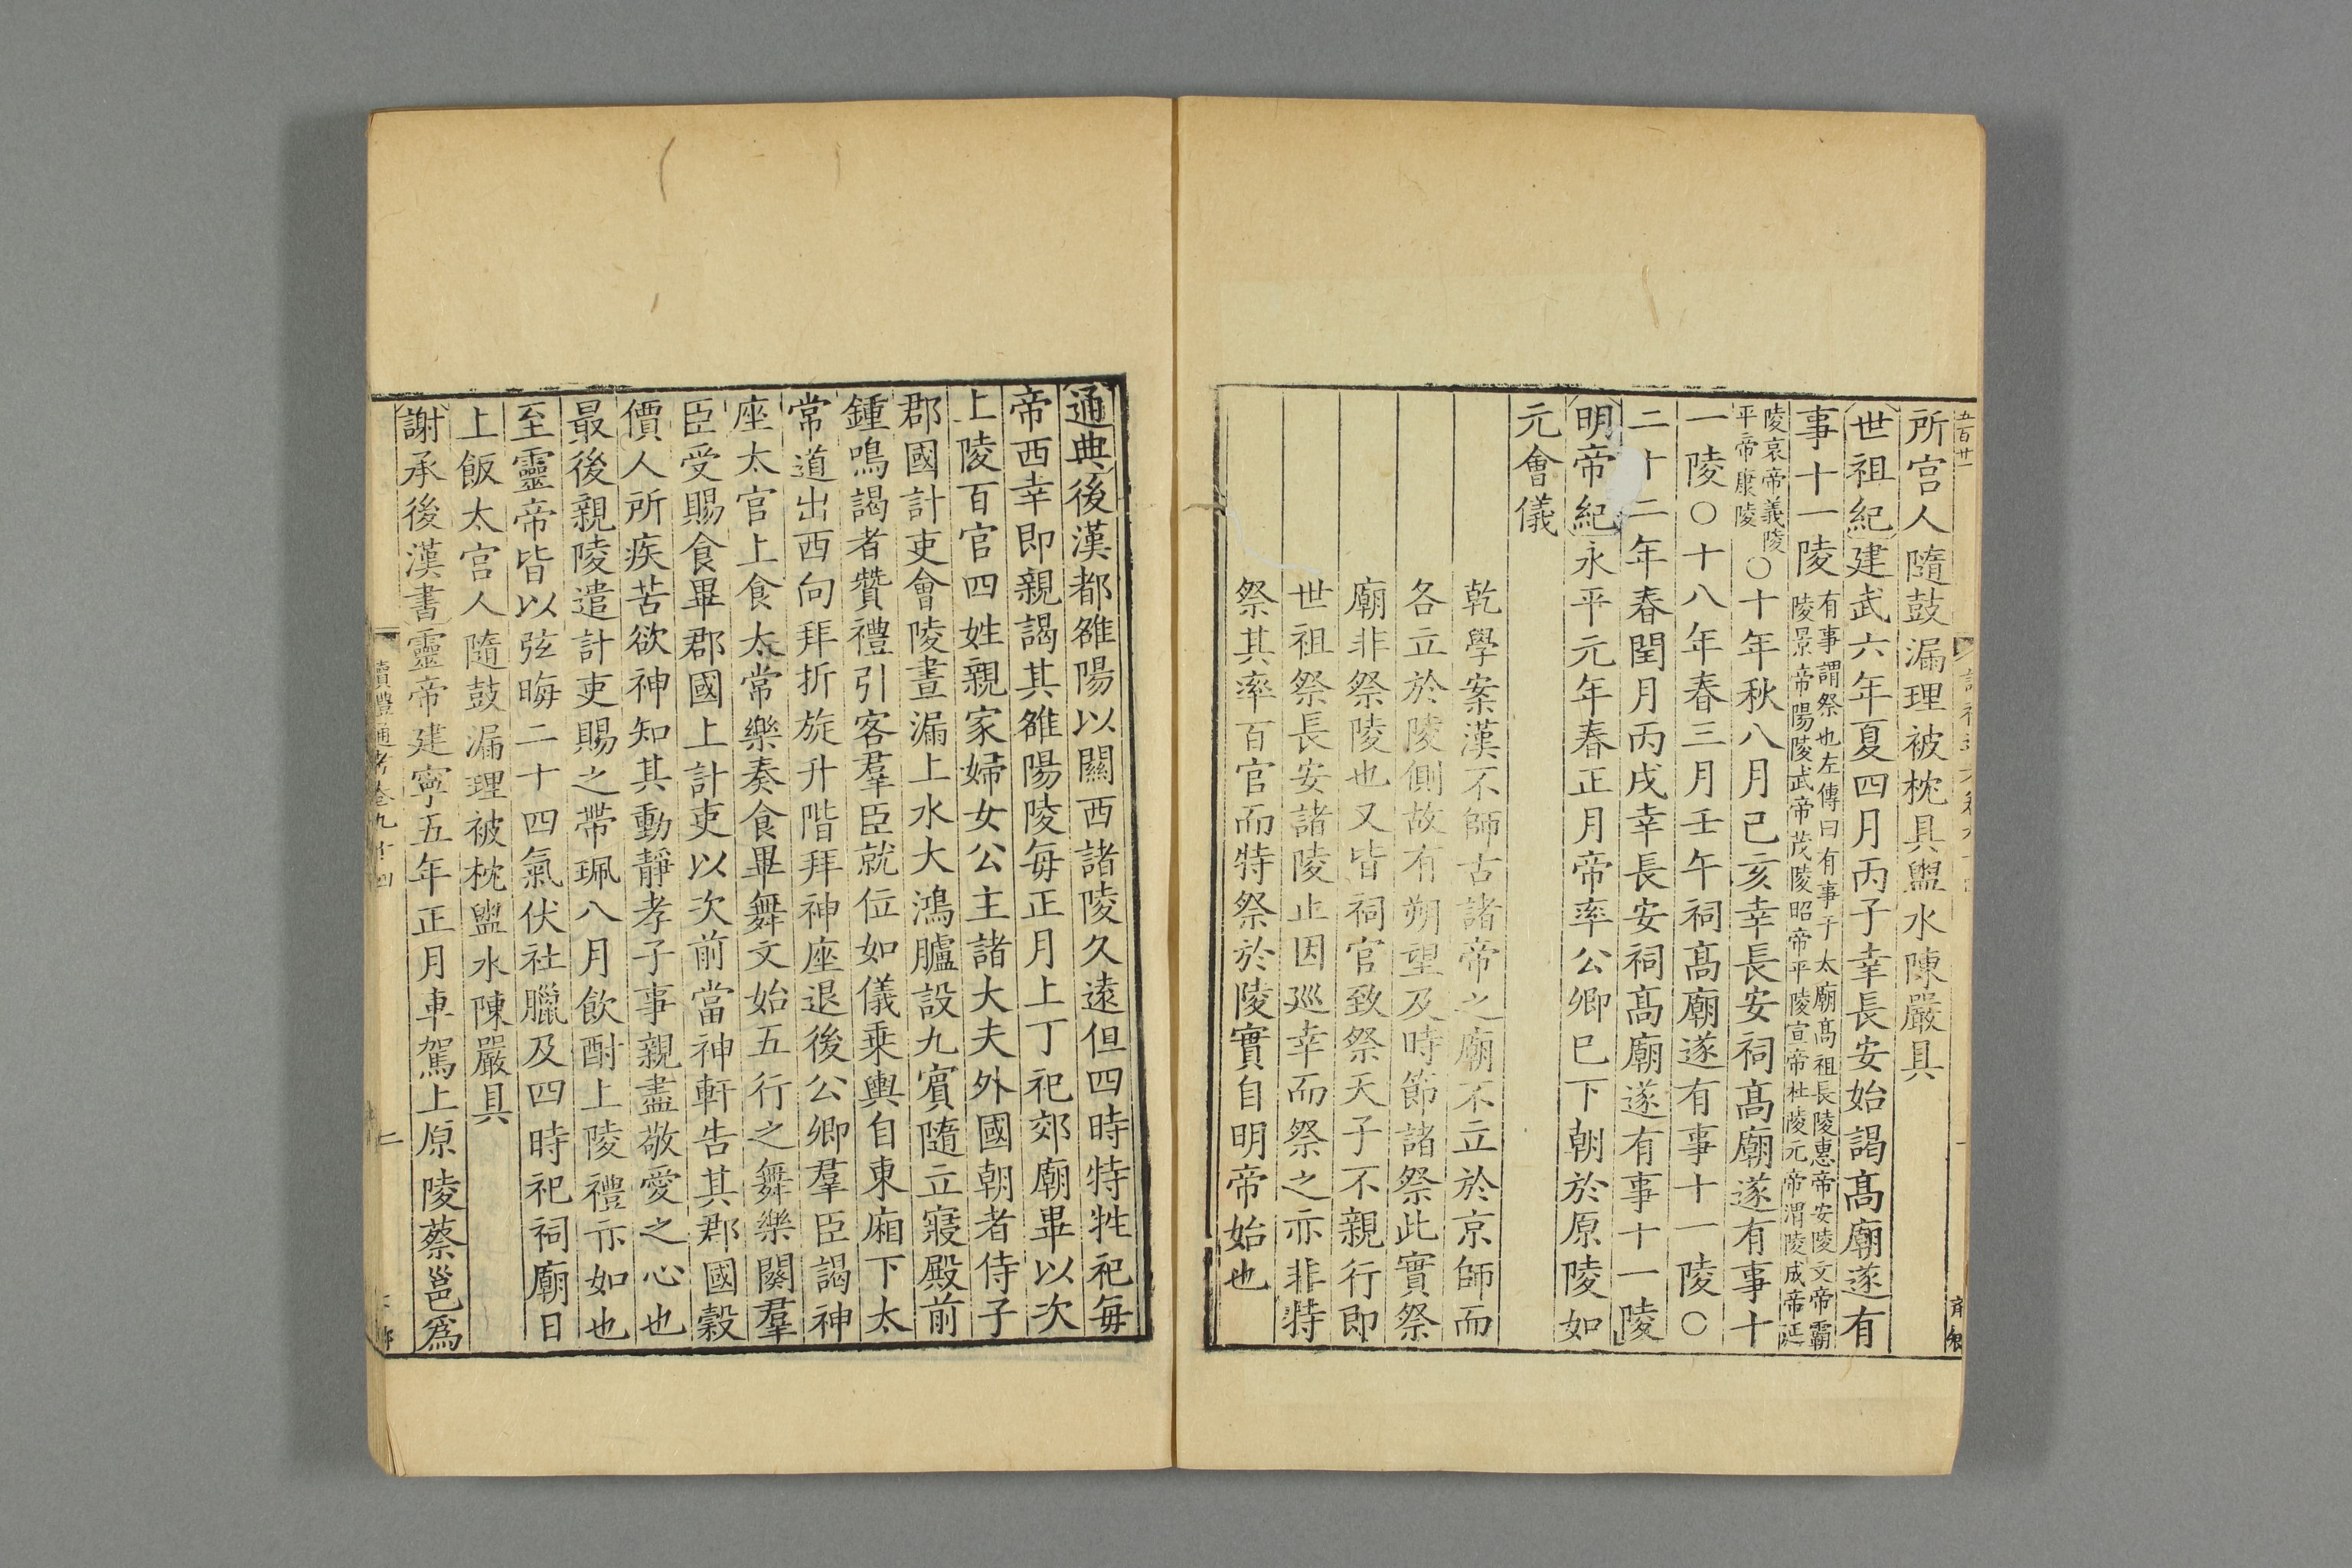 五百廿一
所宫人隨鼓漏理被枕具盥水陳嚴具
世祖紀建武六年夏四月丙子幸長安始謁髙廟遂有
事十一陵有事謂祭也左傳曰有事于太廟髙祖長陵惠帝安陵文帝霸
陵景帝陽陵武帝茂陵昭帝平陵宣帝杜陵元帝渭陵成帝延
陵哀帝義陵
平帝康陵○十年秋八月已亥幸長安祠髙廟遂有事十
一陵○十八年春三月壬午祠髙廟遂有事十一陵○
二十二年春閏月丙戌幸長安祠髙廟遂有事十一陵
明帝紀永平元年春正月帝率公卿已下朝於原陵如
元會儀
乾學案漢不師古諸帝之廟不立於京師而
各立於陵側故有朔望及時節諸祭此實祭
廟非祭陵也又皆祠官致祭天子不親行即
世祖祭長安諸陵止因廵幸而祭之亦非特
祭其率百官而特祭於陵實自明帝始也
通典後漢都雒陽以關西諸陵久遠但四時特牲祀毎
帝西幸即親謁其雒陽陵毎正月上丁祀郊廟畢以次
上陵百官四姓親家婦女公主諸大夫外國朝者侍子
郡國計吏會陵晝漏上水大鴻臚設九賓隨立寢殿前
鍾鳴謁者贊禮引客羣臣就位如儀乗輿自東廂下太
常道出西向拜折旋升階拜神座退後公卿羣臣謁神
座太官上食太常樂奏食畢舞文始五行之舞樂闋羣
臣受賜食畢郡國上計吏以次前當神軒告其郡國穀
價人所疾苦欲神知其動靜孝子事親盡敬愛之心也
最後親陵遣計吏賜之帶珮八月飲酎上陵禮亦如也
至靈帝皆以弦晦二十四氣伏社臘及四時祀祠廟日
上飯太官人隨鼓漏理被枕盥水陳嚴具
謝承後漢書靈帝建寧五年正月車駕上原陵蔡邕爲
讀禮通考卷九十四
二